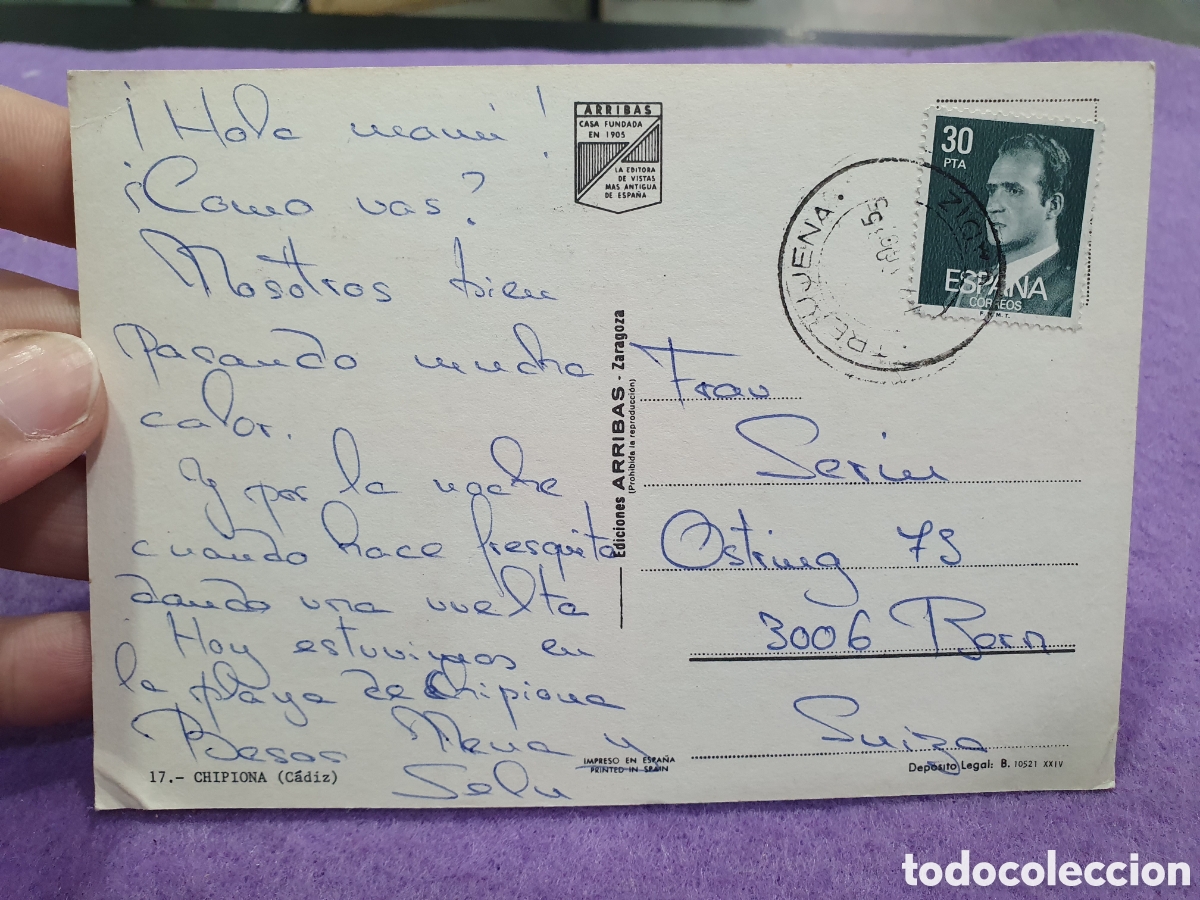 ¡Hola mami!
¡Como vas?
Nosotros bien
Pasando mucha
calor.
Y por la noche
cuando hace fresquito
dando una vuelta
Hoy estuvimos en
la playa de Chipiona
Besos Mena y
Selu
17.- CHIPIONA (Cádiz)
ARRIBAS
CASA FUNDADA
EN 1905
LA EDITORA
DE VISTAS
MAS ANTIGUA
DE ESPAÑA
Ediciones ARRIBAS - Zaragoza
(Prohibida la reproducción)
IMPRESO EN ESPAÑA
PRINTED IN SPAIN
30
PTA
ESPAÑA
CORREOS
F.N.M.T.
TREBUJENA
Frau
Serim
Ostring 75
3006 Bern
Suiza
Depósito Legal: B. 10521 XXIV
todocoleccion